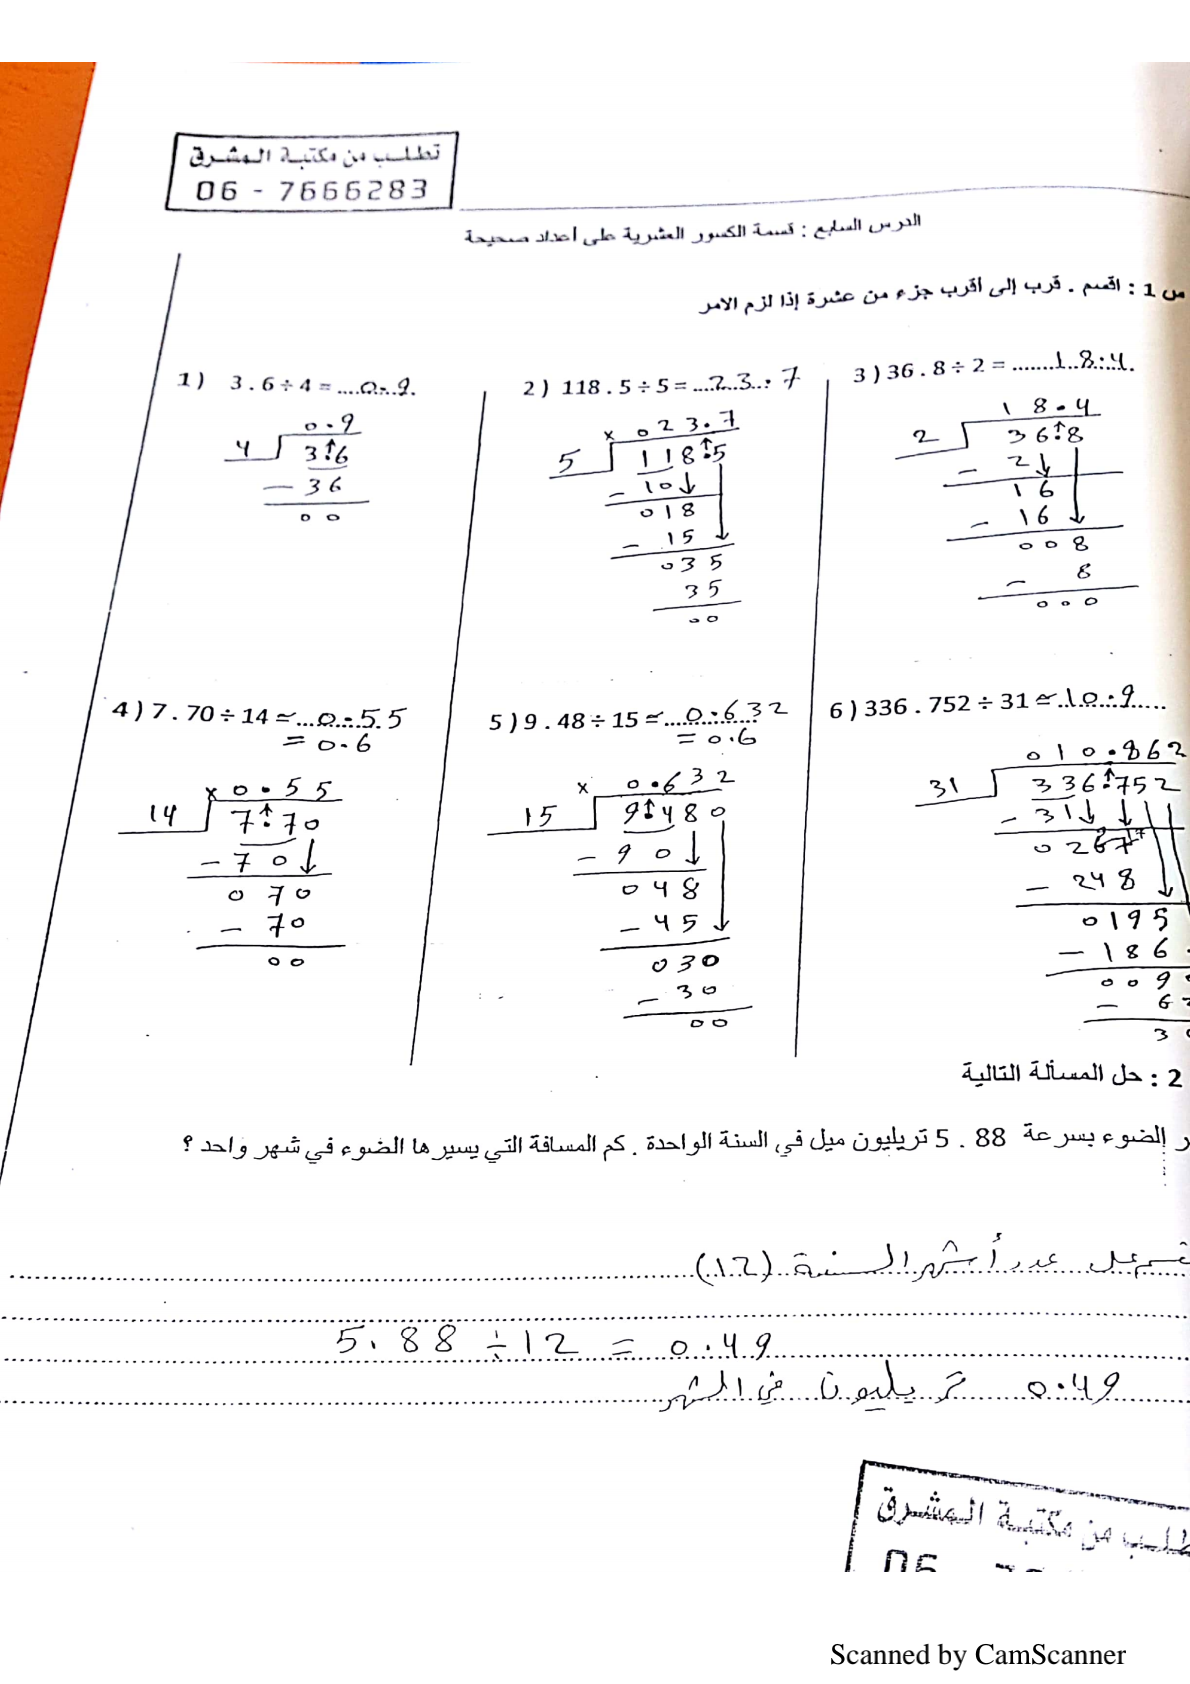 تطلب من مكتبة المشرق
06 - 7666283
الدرس السابع : قسمة الكسور العشرية على أعداد صحيحة
س 1 : اقسم . قرب إلى أقرب جزء من عشرة إذا لزم الامر
1 ) 3 . 6 ÷ 4 = ....0.9.
0.9
4 3.6
- 36
0 0
2 ) 118 . 5 ÷ 5 = ....23.7
x 0 2 3.7
5 118.5
- 10
018
- 15
035
35
00
3 ) 36 . 8 ÷ 2 = .......18.4.
1 8.4
2 36.8
- 2
16
- 16
0 0 8
- 8
0 0 0
4 ) 7 . 70 ÷ 14 ≃ ...0.55
= 0.6
x 0.55
14 7.70
- 70
070
- 70
00
5 ) 9 . 48 ÷ 15 ≃ ...0.632
= 0.6
x 0.632
15 9.480
- 90
048
- 45
030
- 30
00
6 ) 336 . 752 ÷ 31 ≃ .10.9.....
010.862
31 336.752
- 31
0267
- 248
0195
- 186
009
- 6
3
2 : حل المسألة التالية
ر الضوء بسرعة 88 . 5 تريليون ميل في السنة الواحدة . كم المسافة التي يسيرها الضوء في شهر واحد ؟
عدد أشهر السنة (12)
5.88 ÷ 12 = 0.49
0.49 تريليون في الشهر
تطلب من مكتبة المشرق
06
Scanned by CamScanner